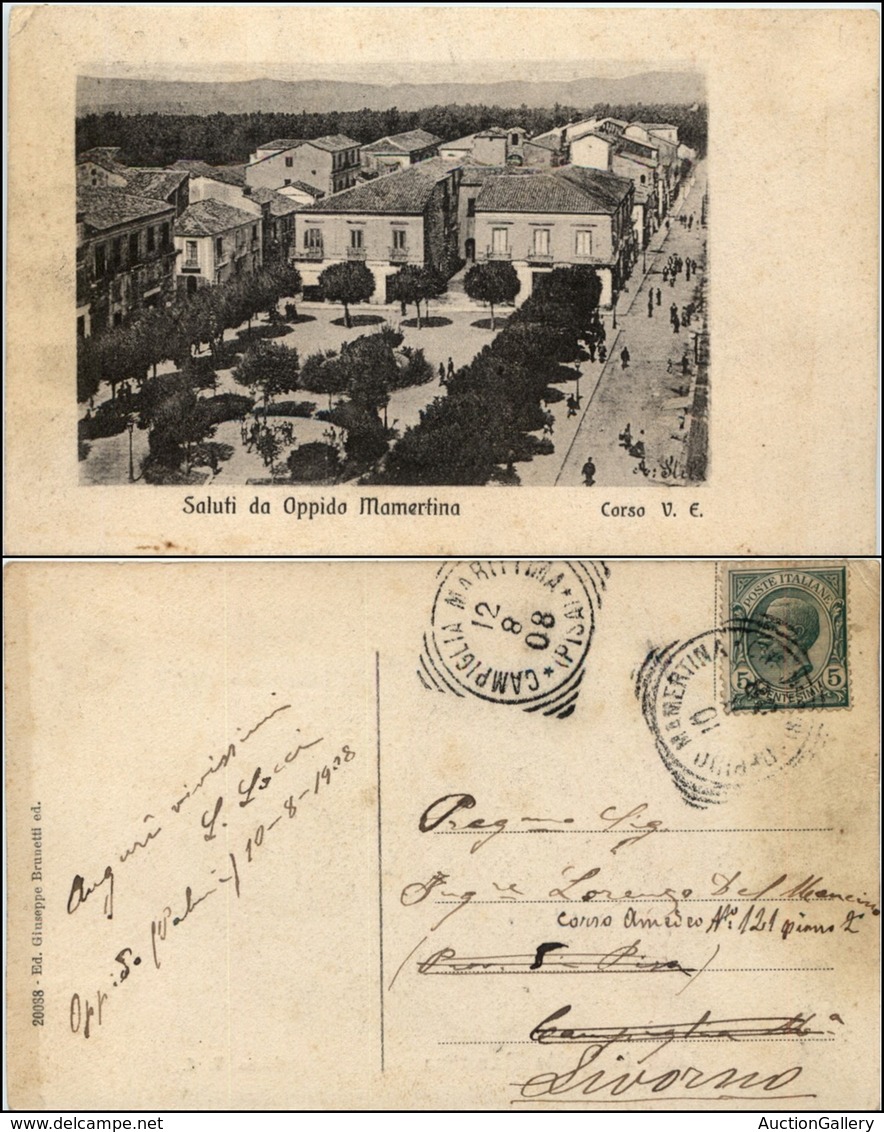 Saluti da Oppido Mamertina
Corso V. E.
CAMPIGLIA MARITTIMA
* (PISA) *
12
8
08
POSTE ITALIANE
5 CENTESIMI 5
OPPIDO MAMERTINA
10
20088 - Ed. Giuseppe Brunetti ed.
Auguri vivissimi
L. Locci
Oppido (Palmi) 10-8-1908
Pregmo Sig.
Ingre Lorenzo Del Mancino
corso Amedeo No. 121 piano 2o
(Prov. di Pisa)
Campiglia Ma
Livorno
AuctionGallery